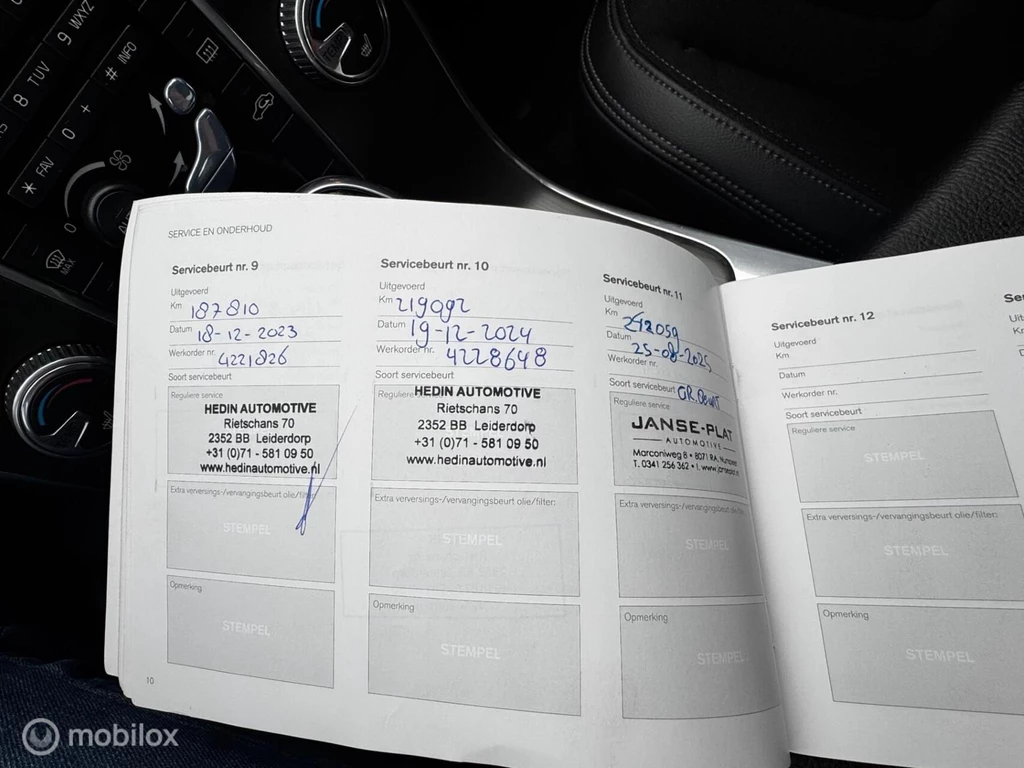 9 WXYZ
8 TUV
# INFO
0 +
* FAV
0
MAX
SERVICE EN ONDERHOUD
Servicebeurt nr. 9
Uitgevoerd
Km 187810
Datum 18-12-2023
Werkorder nr. 4221826
Soort servicebeurt
Reguliere service
HEDIN AUTOMOTIVE
Rietschans 70
2352 BB Leiderdorp
+31 (0)71 - 581 09 50
www.hedinautomotive.nl
Extra verversings-/vervangingsbeurt olie/filter:
STEMPEL
Opmerking
STEMPEL
10
Servicebeurt nr. 10
Uitgevoerd
Km 219992
Datum 19-12-2024
Werkorder nr. 4228648
Soort servicebeurt
Reguliere
HEDIN AUTOMOTIVE
Rietschans 70
2352 BB Leiderdorp
+31 (0)71 - 581 09 50
www.hedinautomotive.nl
Extra verversings-/vervangingsbeurt olie/filter:
STEMPEL
Opmerking
STEMPEL
Servicebeurt nr. 11
Uitgevoerd
Km 242059
Datum 25-08-2025
Werkorder nr.
Soort servicebeurt GR. Beurt
Reguliere service
JANSE-PLAT
AUTOMOTIVE
Marconiweg 8 • 8071 RA
T. 0341 256 362 • I.
Extra verversings-/vervangingsbeurt olie
STEMPEL
Opmerking
STEMPEL
Servicebeurt nr. 12
Uitgevoerd
Km
Datum
Werkorder nr.
Soort servicebeurt
Reguliere service
STEMPEL
Extra verversings-/vervangingsbeurt olie/filter:
STEMPEL
Opmerking
STEMPEL
mobilox